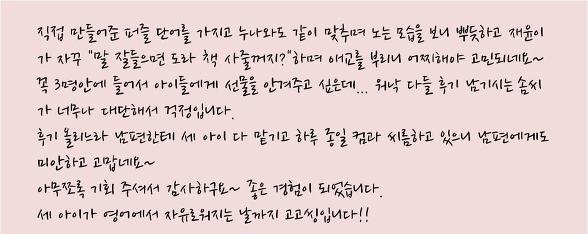 직접 만들어준 퍼즐 단어를 가지고 누나와도 같이 맞추며 노는 모습을 보니 뿌듯하고 재윤이
가 자꾸 "말 잘들으면 도라 책 사줄꺼지?"하며 애교를 부리니 어찌해야 고민되네요~
꼭 3명안에 들어서 아이들에게 선물을 안겨주고 싶은데... 워낙 다들 후기 남기시는 솜씨
가 너무나 대단해서 걱정입니다.
후기 올리느라 남편한테 세 아이 다 맡기고 하루 종일 컴과 씨름하고 있으니 남편에게도
미안하고 고맙네요~
아무쪼록 기회 주셔서 감사하구요~ 좋은 경험이 되었습니다.
세 아이가 영어에서 자유로워지는 날까지 고고씽입니다!!